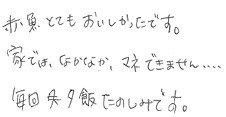 赤魚とてもおいしかったです。
家では、なかなか、マネできません‥‥
毎回夕飯たのしみです。